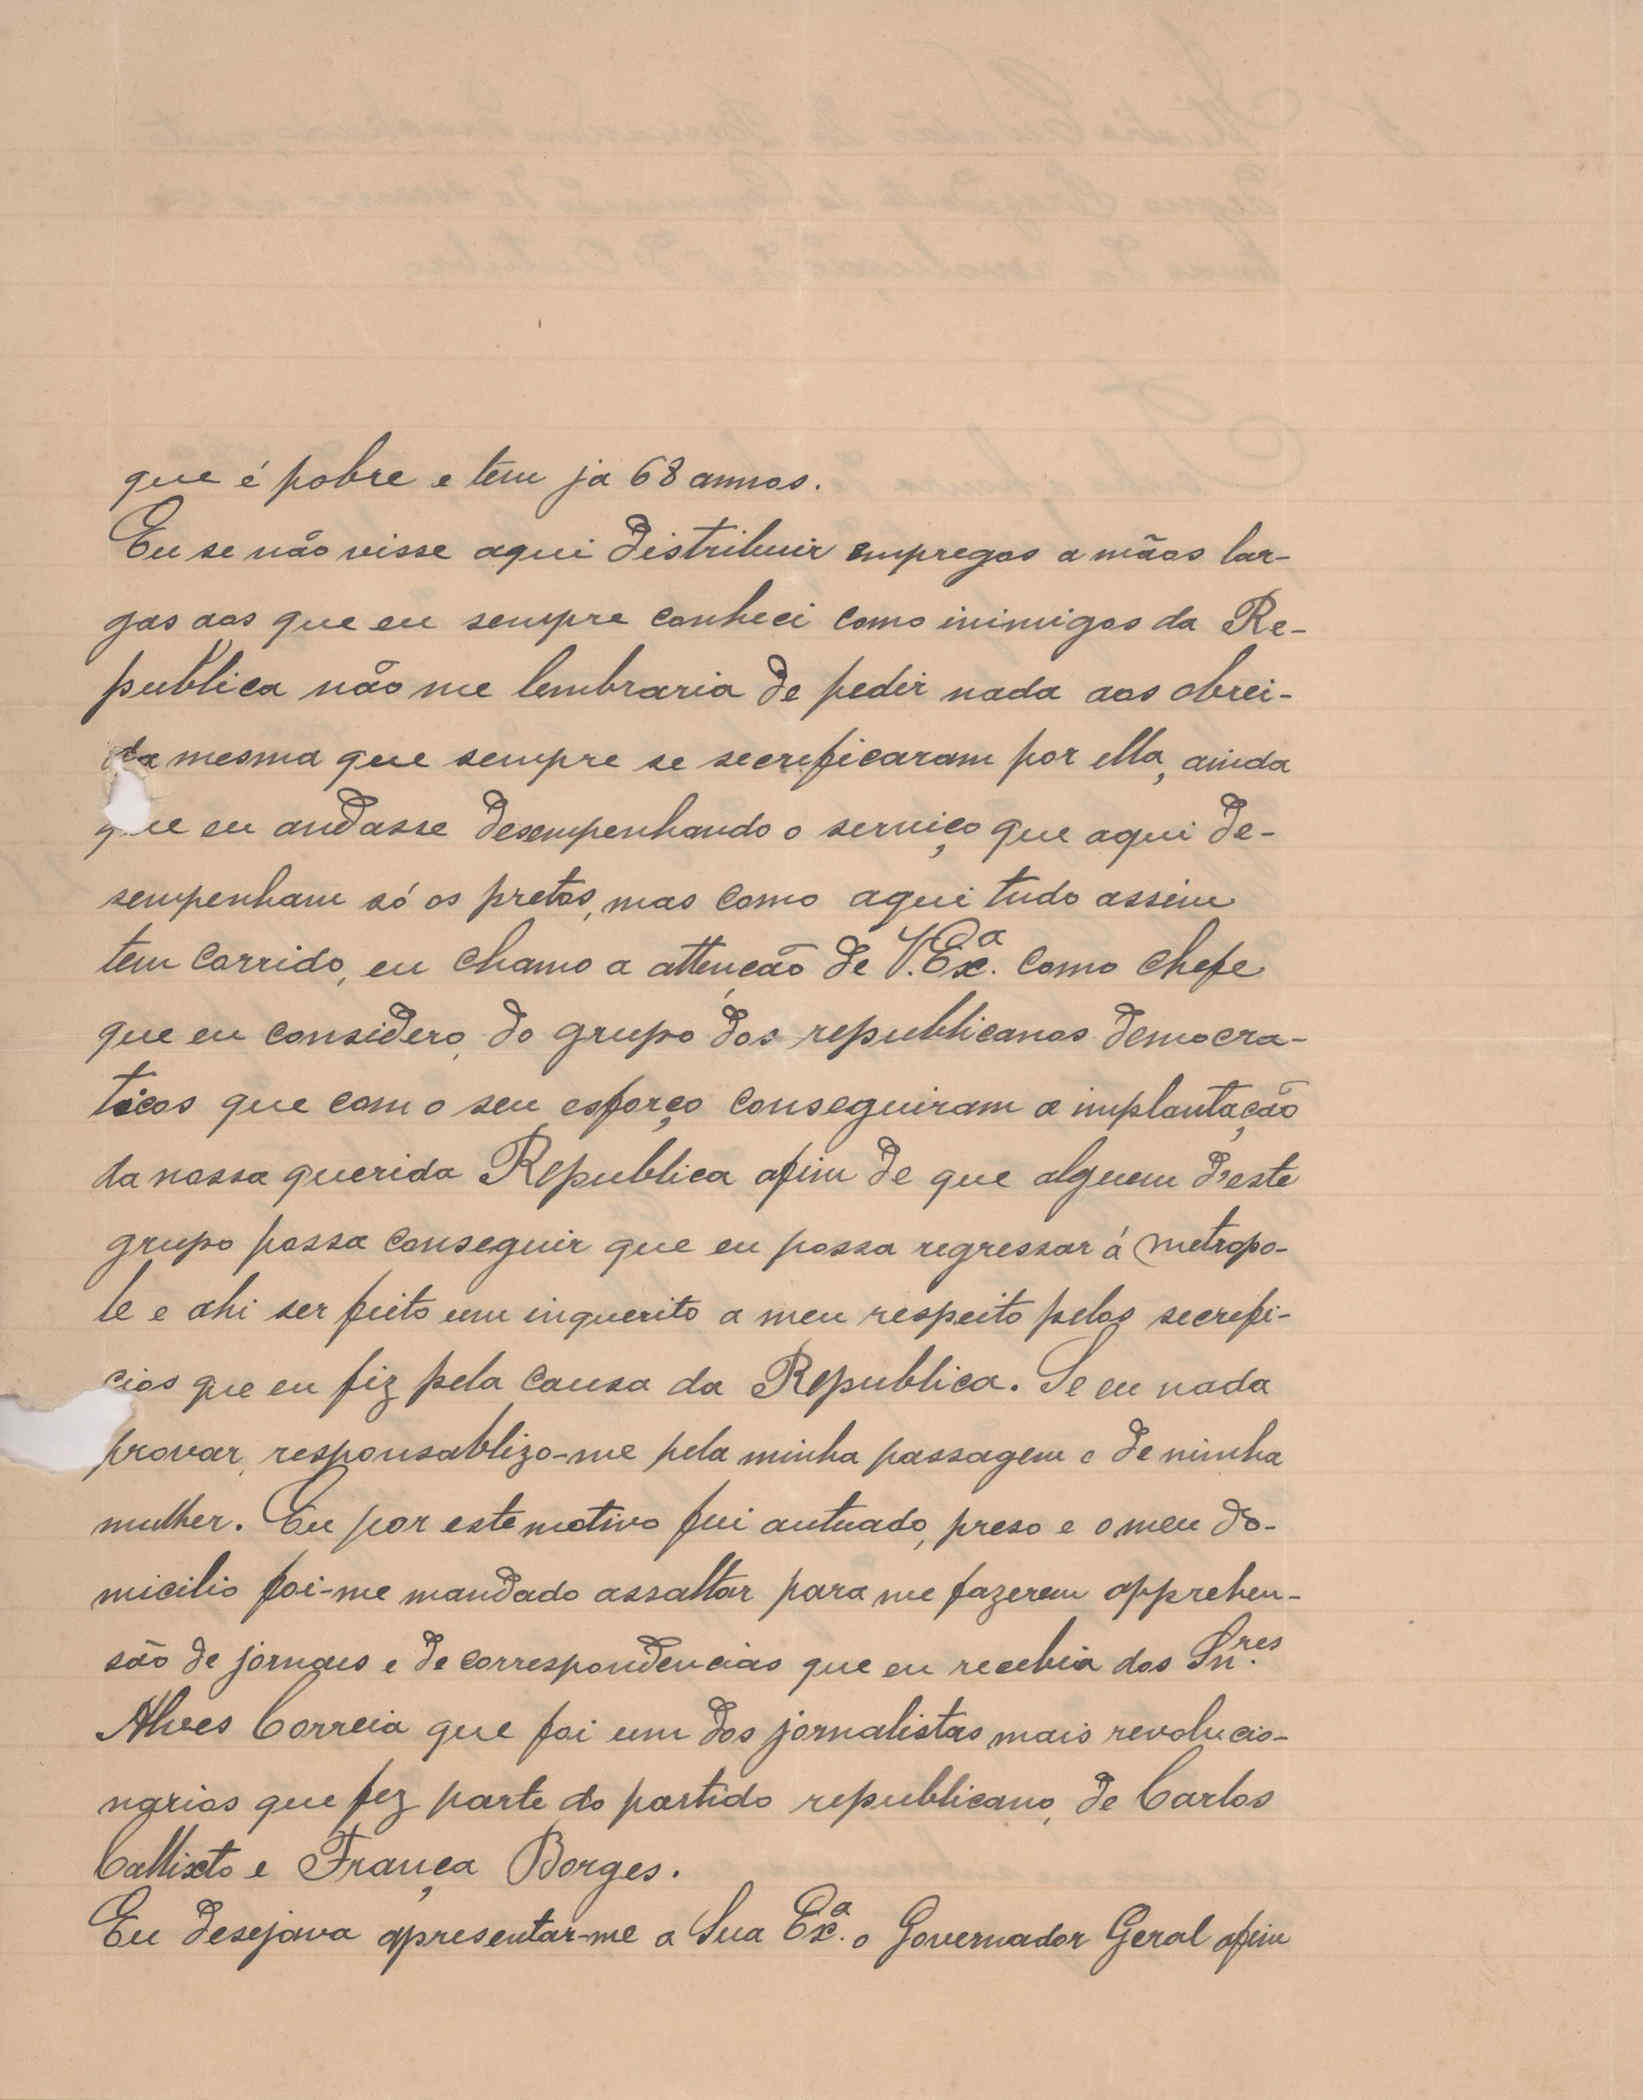 que é pobre e tem ja 68 annos.
Eu se não visse aqui distribuir empregos a mãos lar-
gas aos que eu sempre conheci como inimigos da Re-
publica não me lembraria de pedir nada aos obrei-
da mesma que sempre se secreficaram por ella, ainda
que eu andasse desempenhando o serviço que aqui de-
sempenham só os pretos, mas como aqui tudo assim
tem corrido, eu chamo a attenção de V. Exª. como chefe
que eu considero, do grupo dos republicanos democra-
ticos que com o seu esforço conseguiram a implantação
da nossa querida Republica afim de que alguem d'este
grupo possa conseguir que eu possa regressar á metropo-
le e ahi ser feito um inquerito a meu respeito pelos secrefi-
cios que eu fiz pela causa da Republica. Se eu nada
provar, responsablizo-me pela minha passagem e de minha
mulher. Eu por este motivo fui autuado, preso e o meu do-
micilio foi-me mandado assaltar para me fazerem apprehen-
são de jornaes e de correspondencias que eu recebia dos Snres.
Alves Correia que foi um dos jornalistas mais revolucio-
narios que fez parte do partido republicano, de Carlos
Callixto e França Borges.
Eu desejava apresentar-me a Sua Exª. o Governador Geral afim